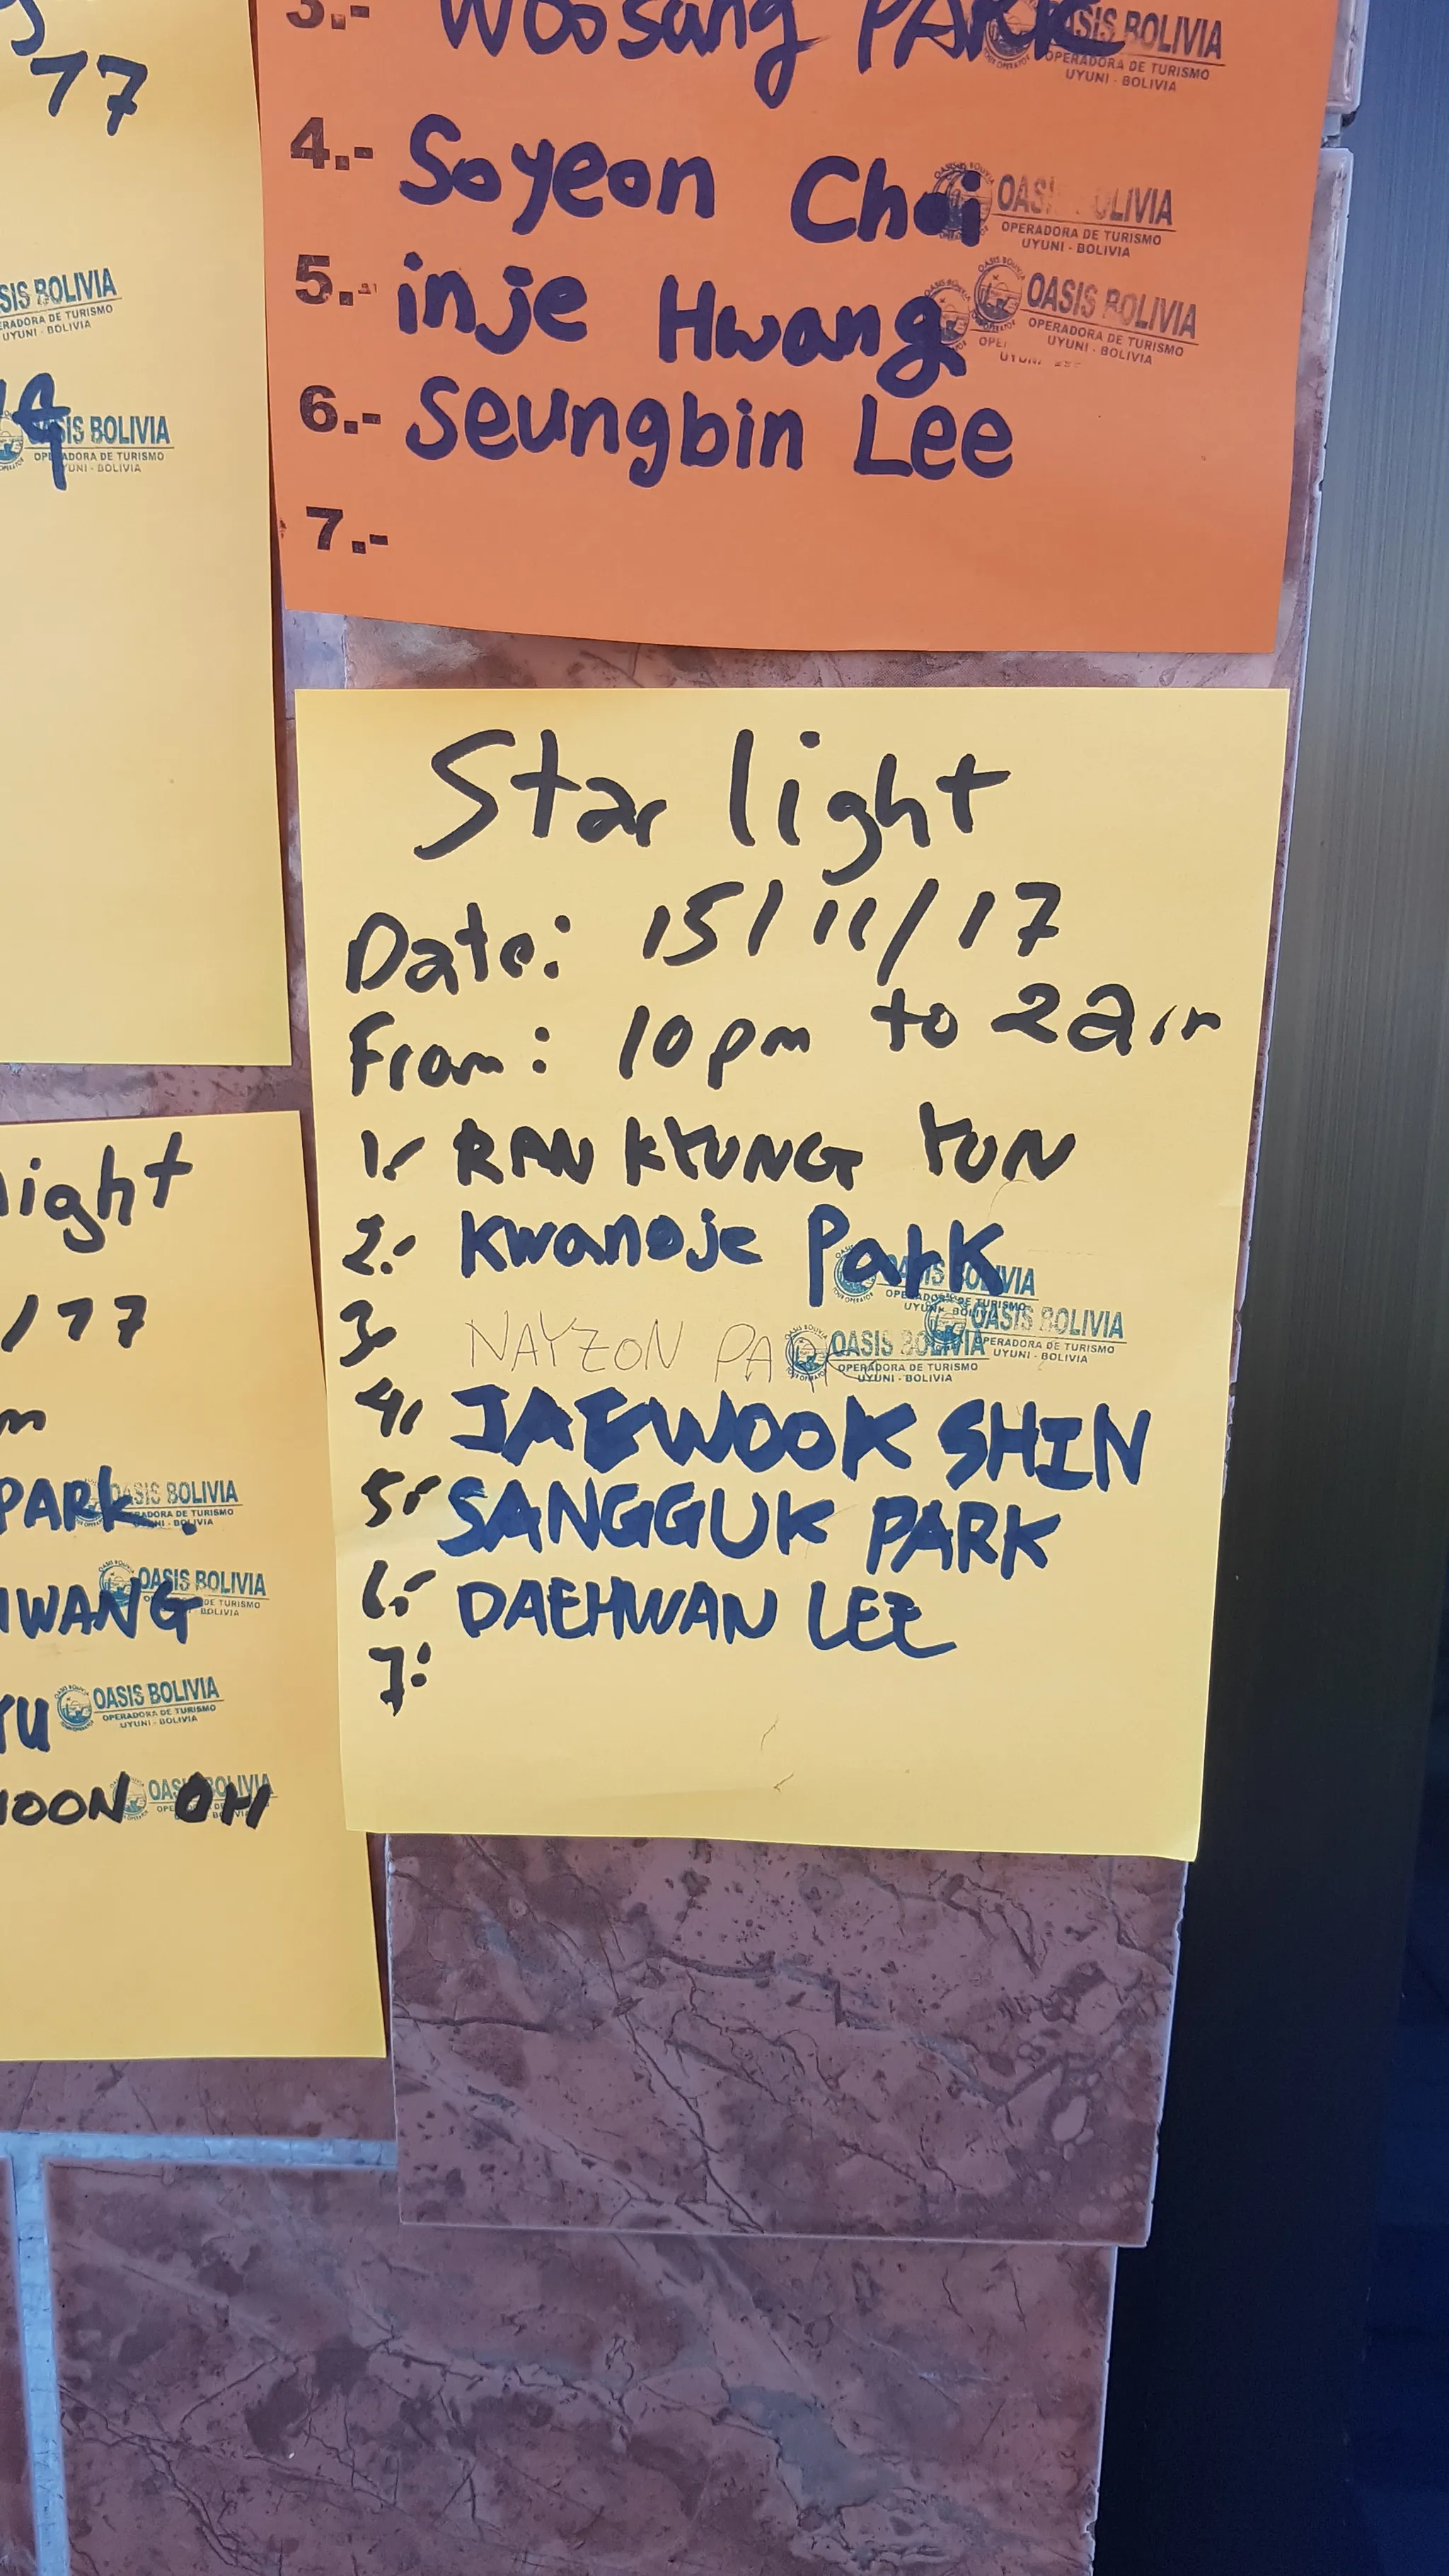 17
SIS BOLIVIA
RADORA DE TURISMO
UYUNI - BOLIVIA
OASIS BOLIVIA
OPERADORA DE TURISMO
UYUNI - BOLIVIA
3.- Woosang PARK
OASIS BOLIVIA
OPERADORA DE TURISMO
UYUNI - BOLIVIA
4.- Soyeon Choi
OASIS BOLIVIA
OPERADORA DE TURISMO
UYUNI - BOLIVIA
5.- inje Hwang
OASIS BOLIVIA
OPERADORA DE TURISMO
UYUNI - BOLIVIA
6.- Seungbin Lee
7.-
Star light
Date: 15/11/17
From: 10pm to 2am
1.- RAN KYUNG YUN
2.- Kwanoje Park
OASIS BOLIVIA
OPERADORA DE TURISMO
UYUNI - BOLIVIA
OASIS BOLIVIA
OPERADORA DE TURISMO
UYUNI - BOLIVIA
3- NAYZON PARK
OASIS BOLIVIA
OPERADORA DE TURISMO
UYUNI - BOLIVIA
4.- JAEWOOK SHIN
5.- SANGGUK PARK
6.- DAEHWAN LEE
7.-
ight
/17
m
PARK.
OASIS BOLIVIA
OPERADORA DE TURISMO
UYUNI - BOLIVIA
HWANG
OASIS BOLIVIA
OPERADORA DE TURISMO
UYUNI - BOLIVIA
YU
OASIS BOLIVIA
OPERADORA DE TURISMO
UYUNI - BOLIVIA
HOON OH
OASIS BOLIVIA